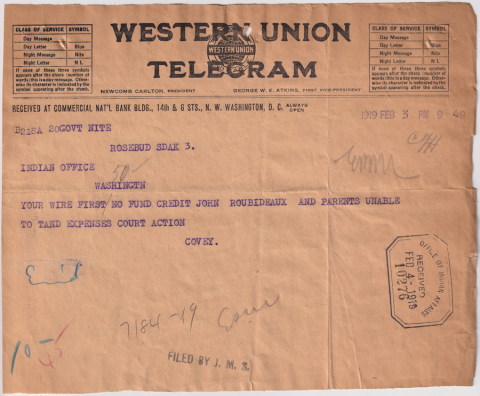 CLASS OF SERVICE SYMBOL
Day Message
Day Letter Blue
Night Message Nite
Night Letter N L
If none of these three symbols appears after the check (number of words) this is a day message. Otherwise its character is indicated by the symbol appearing after the check.
WESTERN UNION
WESTERN UNION
TELEGRAM
NEWCOMB CARLTON, PRESIDENT
GEORGE W. E. ATKINS, FIRST VICE-PRESIDENT
CLASS OF SERVICE SYMBOL
Day Message
Day Letter Blue
Night Message Nite
Night Letter N L
If none of these three symbols appears after the check (number of words) this is a day message. Otherwise its character is indicated by the symbol appearing after the check.
RECEIVED AT COMMERCIAL NAT'L BANK BLDG., 14th & G STS., N. W. WASHINGTON, D. C. ALWAYS OPEN
1919 FEB 3 PM 9 49
B218A 20GOVT NITE
ROSEBUD SDAK 3.
INDIAN OFFICE
50
WASHINGTN
YOUR WIRE FIRST NO FUND CREDIT JOHN ROUBIDEAUX AND PARENTS UNABLE
TO TAND EXPENSES COURT ACTION
COVEY.
OFFICE OF INDIAN AFFAIRS
RECEIVED
FEB 4-1919
10276
7184-19
10-
45
FILED BY J. M. S.